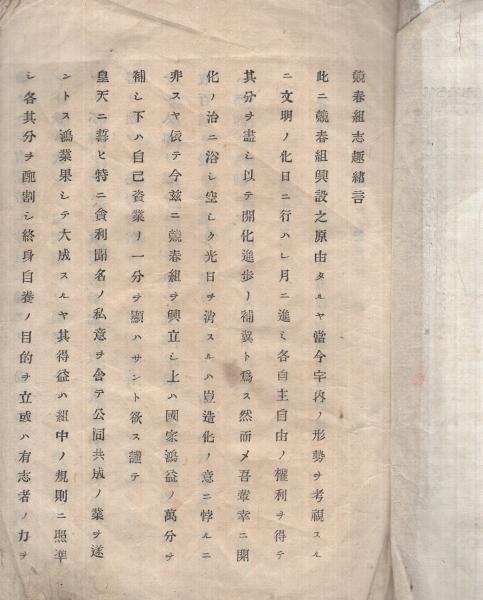 競春組志趣緒言
此ニ競春組興設之原由タルヤ當今宇内ノ形勢ヲ考視スル
ニ文明ノ化日ニ行ハレ月ニ進ミ各自主自由ノ權利ヲ得テ
其分ヲ盡シ以テ開化進歩ノ補翼ト爲ス然而メ吾輩幸ニ開
化ノ治ニ浴シ空シク光日ヲ消スルハ豈造化ノ意ニ悖ルニ
非スヤ依テ今玆ニ競春組ヲ興立シ上ハ國家鴻益ノ萬分ヲ
補シ下ハ自己資業ノ一分ヲ顯ハサント欲ス謹テ
皇天ニ誓ヒ特ニ貪利闘名ノ私意ヲ舍テ公同共成ノ業ヲ遂
ントス鴻業果シテ大成スルヤ其得益ハ組中ノ規則ニ照準
シ各其分ヲ配割シ終身自養ノ目的ヲ立或ハ有志者ノ力ヲ